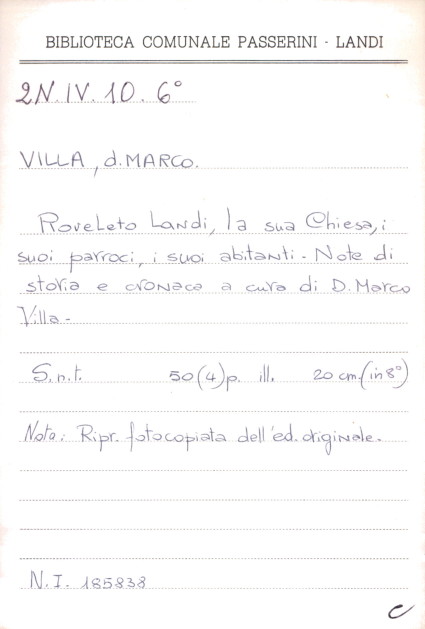 BIBLIOTECA COMUNALE PASSERINI - LANDI
2N.IV.10.6°
VILLA, d.MARCO.
Roveleto Landi, la sua Chiesa, i
suoi parroci, i suoi abitanti - Note di
storia e cronaca a cura di D.Marco
Villa -
S.n.t. 50(4)p. ill. 20 cm.(in 8°)
Nota: Ripr. fotocopiata dell'ed. originale.
N.I. 185838
C